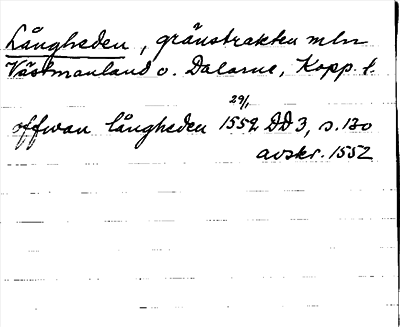 Långheden, gränstrakten mln
Västmanland o. Dalarne, Kopp. l.
29/1
offwan långheden 1552 DD 3, s. 130
avskr. 1552